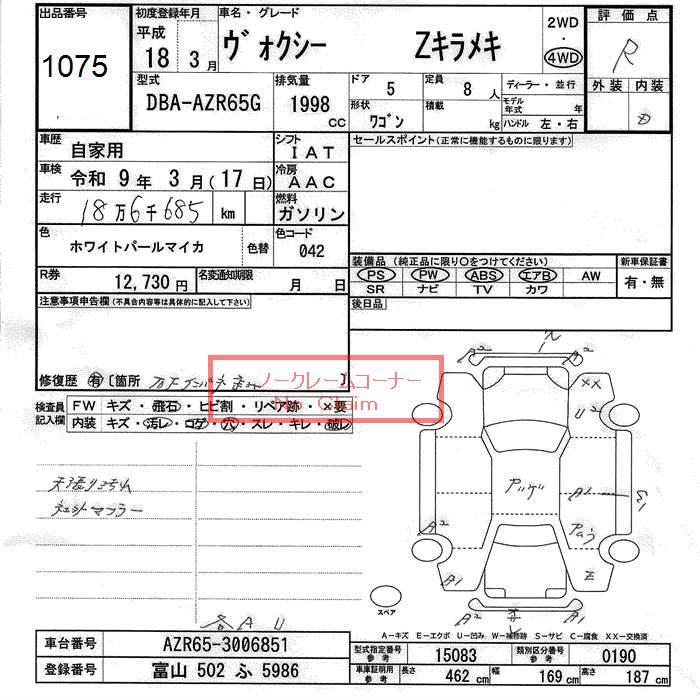 出品番号
1075
初度登録年月
平成
18 年 3 月
車名・グレード
ヴォクシー Zキラメキ
2WD
・
4WD
評価点
R
外装 内装
D
型式
DBA-AZR65G
排気量
1998
CC
ドア 5
定員 8 人
形状 ワゴン
積載 kg
ディーラー・並行
モデル年式 年
ハンドル 左・右
車歴
自家用
シフト
IAT
セールスポイント(正常に機能するものに限ります)
車検
令和 9 年 3 月 ( 17 日)
冷房
AAC
走行
18万6千685 km
燃料
ガソリン
色
ホワイトパールマイカ
色替
色コード
042
装備品 (純正品に限り○をつけてください)
新車保証書
PS PW ABS エアB AW
有・無
SR ナビ TV カワ
R券
12,730 円
名変通知期限
月 日
後日品
注意事項申告欄(不具合内容等は具体的に記入して下さい)
修復歴 有 [箇所 ]
ノークレームコーナー
No Claim
検査員記入欄
FW キズ・飛石・ヒビ割・リペア跡・×要
内装 キズ・汚レ・コゲ・穴・スレ・キレ・破レ
天張りヨゴレ
デュットマフラー
各 A U
A2
A2
XX
U2
アゲ
A1
A2
A1
スペア
A2
A1
A-キズ E-エクボ U-凹み W-補修跡 S-サビ C-腐食 XX-交換済
車台番号
AZR65-3006851
登録番号
富山 502 ふ 5986
型式指定番号
参考
15083
類別区分番号
参考
0190
車庫証明用
参考
長さ 462 cm
幅 169 cm
高さ 187 cm